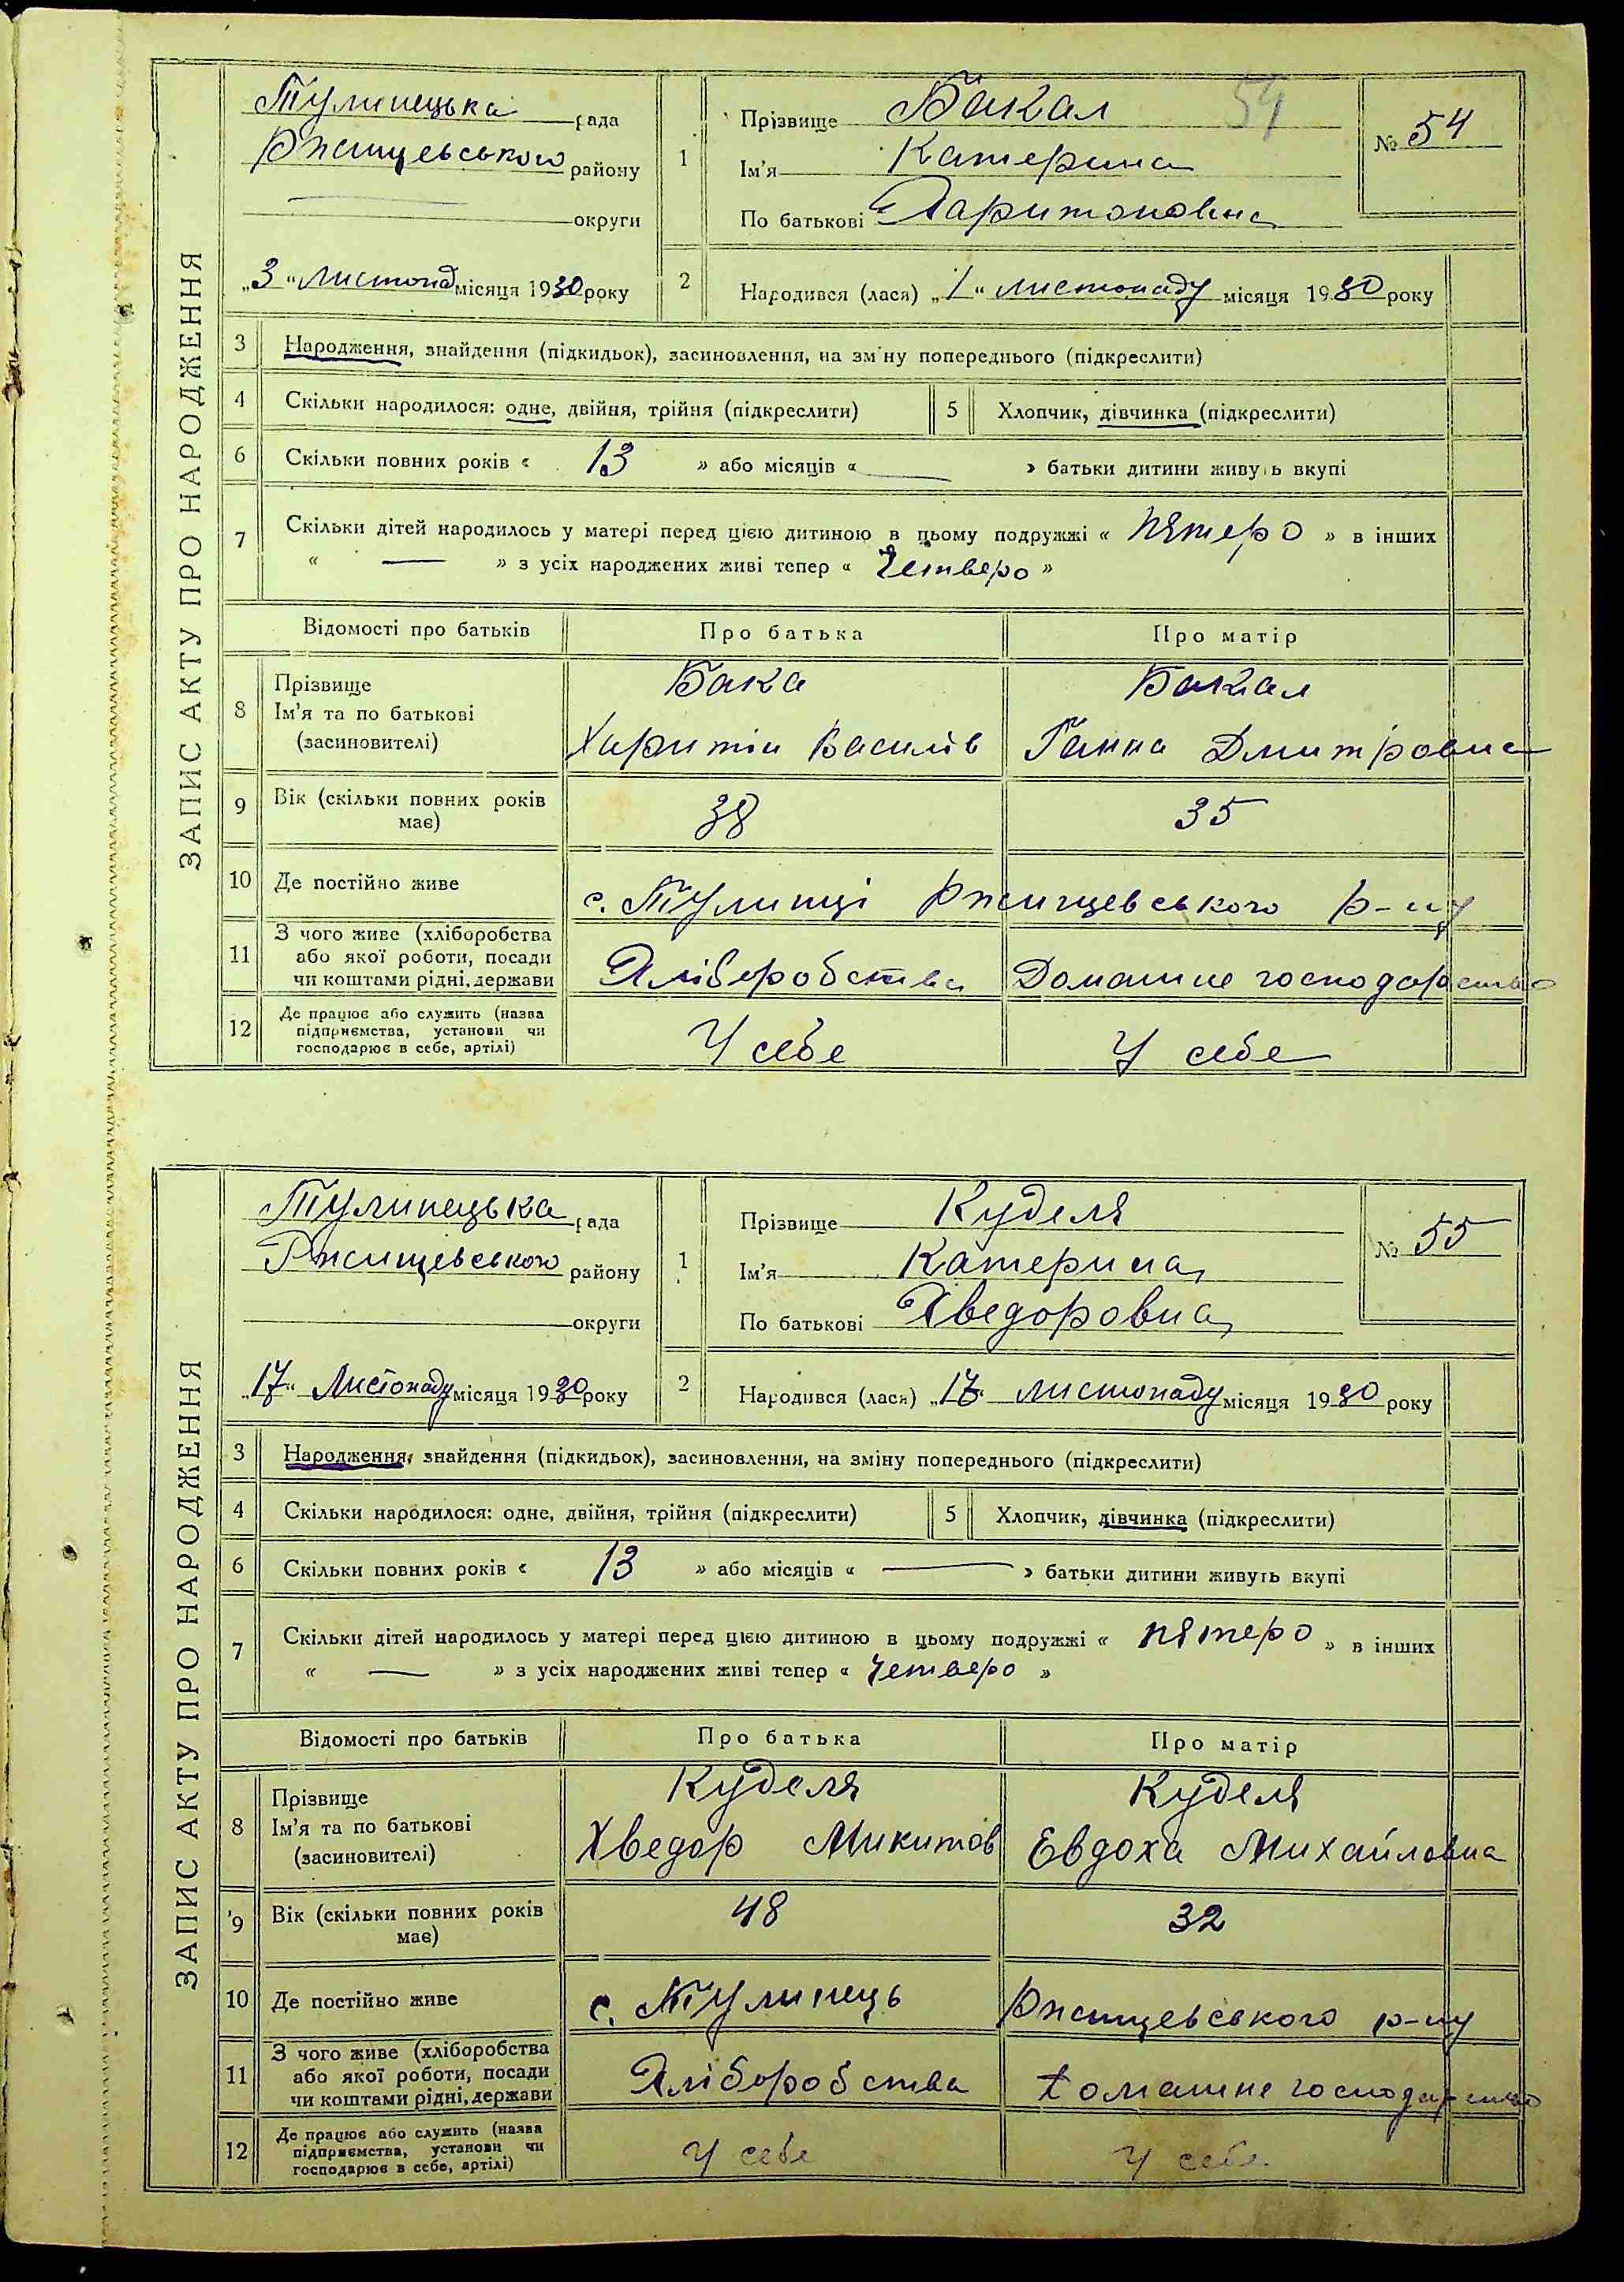 ЗАПИС АКТУ ПРО НАРОДЖЕННЯ
Тулинецька рада
Ржищевського району
округи
„3“ листопад місяця 1930 року
1 Прізвище Бакал 54
Ім'я Катерина
По батькові Харитоновна
№ 54
2 Народився (лася) „1“ листопаду місяця 1930 року
3 Народження, знайдення (підкидьок), засиновлення, на зміну попереднього (підкреслити)
4 Скільки народилося: одне, двійня, трійня (підкреслити) 5 Хлопчик, дівчинка (підкреслити)
6 Скільки повних років « 13 » або місяців « — » батьки дитини живуть вкупі
7 Скільки дітей народилось у матері перед цією дитиною в цьому подружжі « пятеро » в інших
« — » з усіх народжених живі тепер « Четверо »
Відомості про батьків Про батька Про матір
8 Прізвище Бака Бакал
Ім'я та по батькові Харитін Василів Ганна Дмитровна
(засиновителі)
9 Вік (скільки повних років має) 38 35
10 Де постійно живе с. Тулинці Ржищевського р-ну
11 З чого живе (хліборобства або якої роботи, посади чи коштами рідні, держави Хліборобства Домашне господарство
12 Де працює або служить (назва підприємства, установи чи господарює в себе, артілі) У себе У себе
ЗАПИС АКТУ ПРО НАРОДЖЕННЯ
Тулинецька рада
Ржищевського району
округи
„17“ Листопаду місяця 1930 року
1 Прізвище Куделя
Ім'я Катерина
По батькові Хведоровна
№ 55
2 Народився (лася) „17“ листопаду місяця 1930 року
3 Народження, знайдення (підкидьок), засиновлення, на зміну попереднього (підкреслити)
4 Скільки народилося: одне, двійня, трійня (підкреслити) 5 Хлопчик, дівчинка (підкреслити)
6 Скільки повних років « 13 » або місяців « — » батьки дитини живуть вкупі
7 Скільки дітей народилось у матері перед цією дитиною в цьому подружжі « пятеро » в інших
« — » з усіх народжених живі тепер « Четверо »
Відомості про батьків Про батька Про матір
8 Прізвище Куделя Куделя
Ім'я та по батькові Хведор Микитов Евдоха Михайловна
(засиновителі)
9 Вік (скільки повних років має) 48 32
10 Де постійно живе с. Тулинець Ржищевського р-ну
11 З чого живе (хліборобства або якої роботи, посади чи коштами рідні, держави Хліборобства Домашне господарство
12 Де працює або служить (назва підприємства, установи чи господарює в себе, артілі) У себе У себе